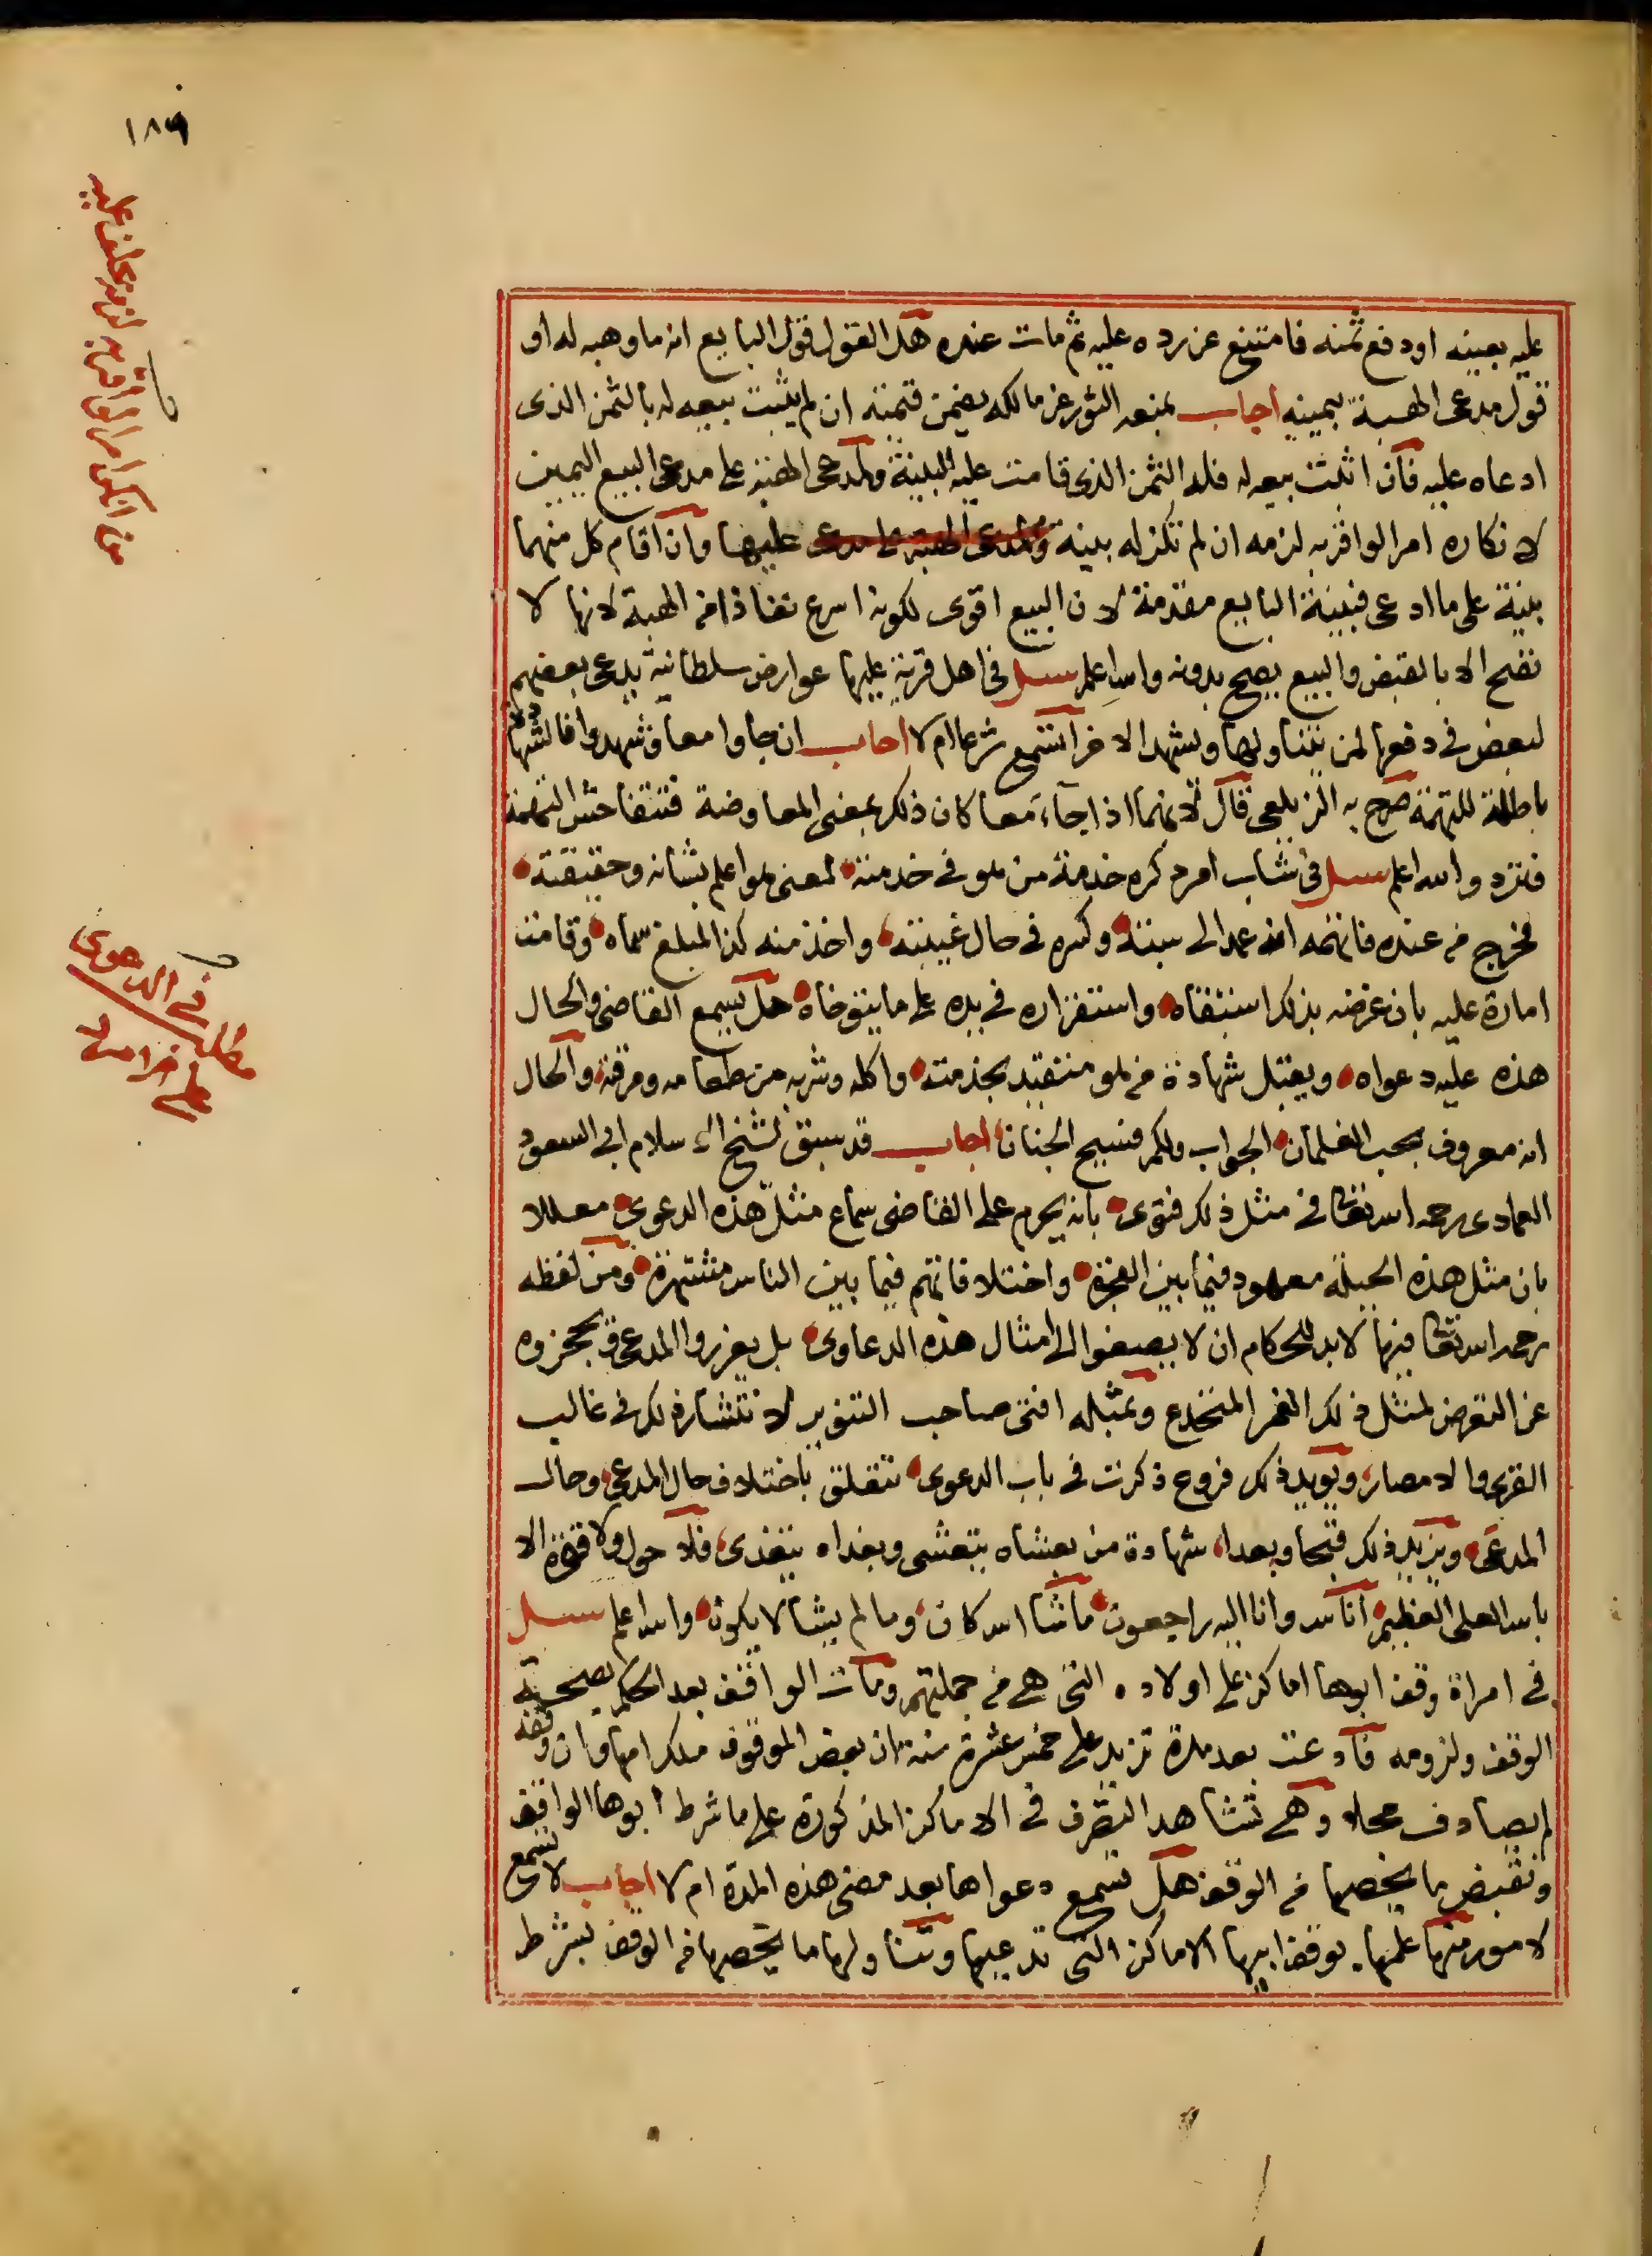 ١٨٩
من انكر امرا لو اقر به لزمه يحلف عليه
عليه بعينه او دفع ثمنه فامتنع عن رده عليه ثم مات عنده هل القول قول البايع انه ما وهبه له او
قول مدعى الهبة بيمينه اجاب بمنعه الثور عن مالكه يضمن قيمته ان لم يثبت بيعه له بالثمن الذى
ادعاه عليه فان اثبت بيعه له فله الثمن الذى قامت عليه البينة ولمدعى الهبة على مدعى البيع اليمين
لانكاره امرا لو اقر به لزمه ان لم تكن له بينة ولمدعى الهبة على مدعى عليها وان اقام كل منهما
بينة على ما ادعى فبينة البايع مقدمة لان البيع اقوى لكونه اسرع نفاذا من الهبة لانها لا
تصح الا بالقبض والبيع يصح بدونه والله اعلم سيل فى اهل قرية عليها عوارض سلطانية يدعى بعضهم
لبعض فى دفعها لمن يتناولها ويشهد الاخر اتسمع شرعا ام لا اجاب ان جاوا معا وشهدوا فالشهادة
باطلة للتهمة صرح به الزيلعى قال لانهما اذا جاآ معا كان ذلك بمعنى المعاوضة فتتفاحش التهمة
فترد والله اعلم سيل فى شاب امرد كره خدمة من هو فى خدمته لمعنى هو اعلم بشانه وحقيقته
فخرج من عنده فاتهمه انه عمد الى بيته وكسره فى حال غيبته واخذ منه كذا لمبلغ سماه وقامت
امارة عليه بان غرضه بذلك استبقاه واستقراره فى يده على ما يتوخاه هل يسمع القاضى والحال
هذه عليه دعواه ويقبل شهادة من هو متقيد بخدمته واكله وشربه من طعامه ومرقته والحال
انه معروف بحب الغلمان الجواب ولكم فسيح الجنان اجاب قد سبق لشيخ الاسلام ابى السعود
العمادى رحمه الله تعالى فى مثل ذلك فتوى بانه يحرم على القاضى سماع مثل هذه الدعوى معللا
بان مثل هذه الحيلة معهود فيما بين الفجرة واختلاقاتهم فيما بين الناس مشتهرة ومن لفظه
رحمه الله تعالى فيها لا بد للحكام ان لا يصغوا الى امثال هذه الدعاوى بل يعزروا المدعى ويحجزوه
عن التعرض لمثل ذلك الغمر المنخدع وبمثله افتى صاحب التنوير لانتشار ذلك فى غالب
القرى والامصار ويويد ذلك فروع ذكرت فى باب الدعوى تتعلق باختلاف حال المدعى وحال
المدعى ويزيد ذلك قبحا وبعدا شهادة من بعشاه يتعشى وبغداه يتغدى فلا حول ولا قوة الا
بالله العلى العظيم انا لله وانا اليه راجعون ما شا الله كان وما لم يشا لا يكون والله اعلم سيل
فى امراة وقف ابوها اماكن على اولاده التى هى من جملتهم ومات الواقف بعد الحكم بصحة
الوقف ولزومه فادعت بعد مدة تزيد على خمس عشرة سنة ان بعض الموقوف ملك امها وان وقفه
لم يصادف محلا وهى تشاهد التصرف فى الاماكن المذكورة على ما شرط ابوها الواقف
وتقبض ما يخصها من الوقف هل تسمع دعواها بعد مضى هذه المدة ام لا اجاب لا تسمع
لامور منها علمها بوقف ابيها الاماكن التى تدعيها وتناولها ما يخصها من الوقف بشرط
مطلب فى الدعوى
على غلام امرد